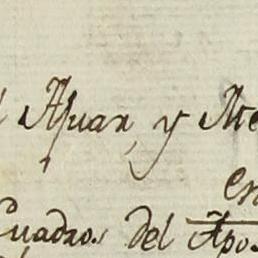 Ajuar, y Me
en
Cuadros del Apo.